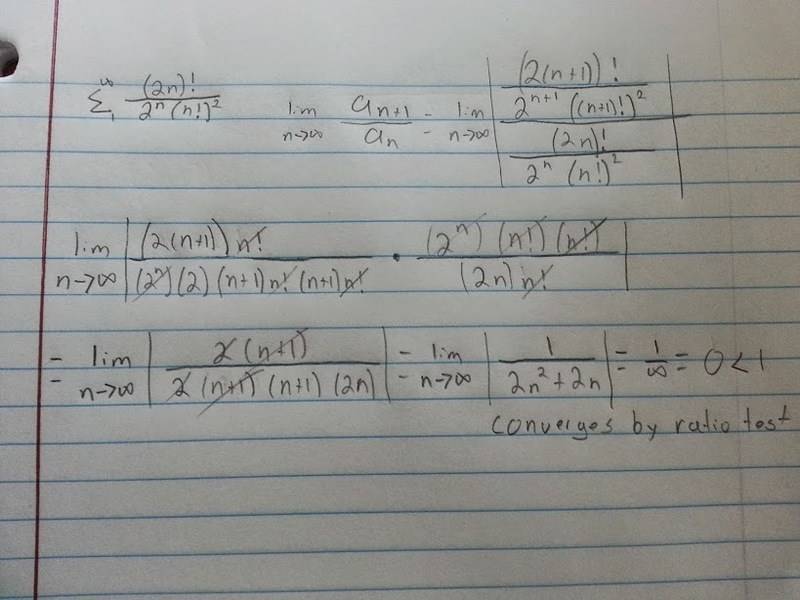 ∑₁^∞ (2n)! / (2ⁿ (n!)²)   lim n→∞ aₙ₊₁ / aₙ = lim n→∞ | ((2(n+1))! / (2ⁿ⁺¹ ((n+1)!)²)) / ((2n)! / (2ⁿ (n!)²)) |
lim n→∞ | (2(n+1)) n! / ((2ⁿ)(2)(n+1)n! (n+1)n!) · (2ⁿ)(n!)(n!) / ((2n) n!) |
= lim n→∞ | 2(n+1) / (2(n+1)(n+1)(2n)) | = lim n→∞ | 1 / (2n²+2n) | = 1/∞ = 0 < 1
converges by ratio test